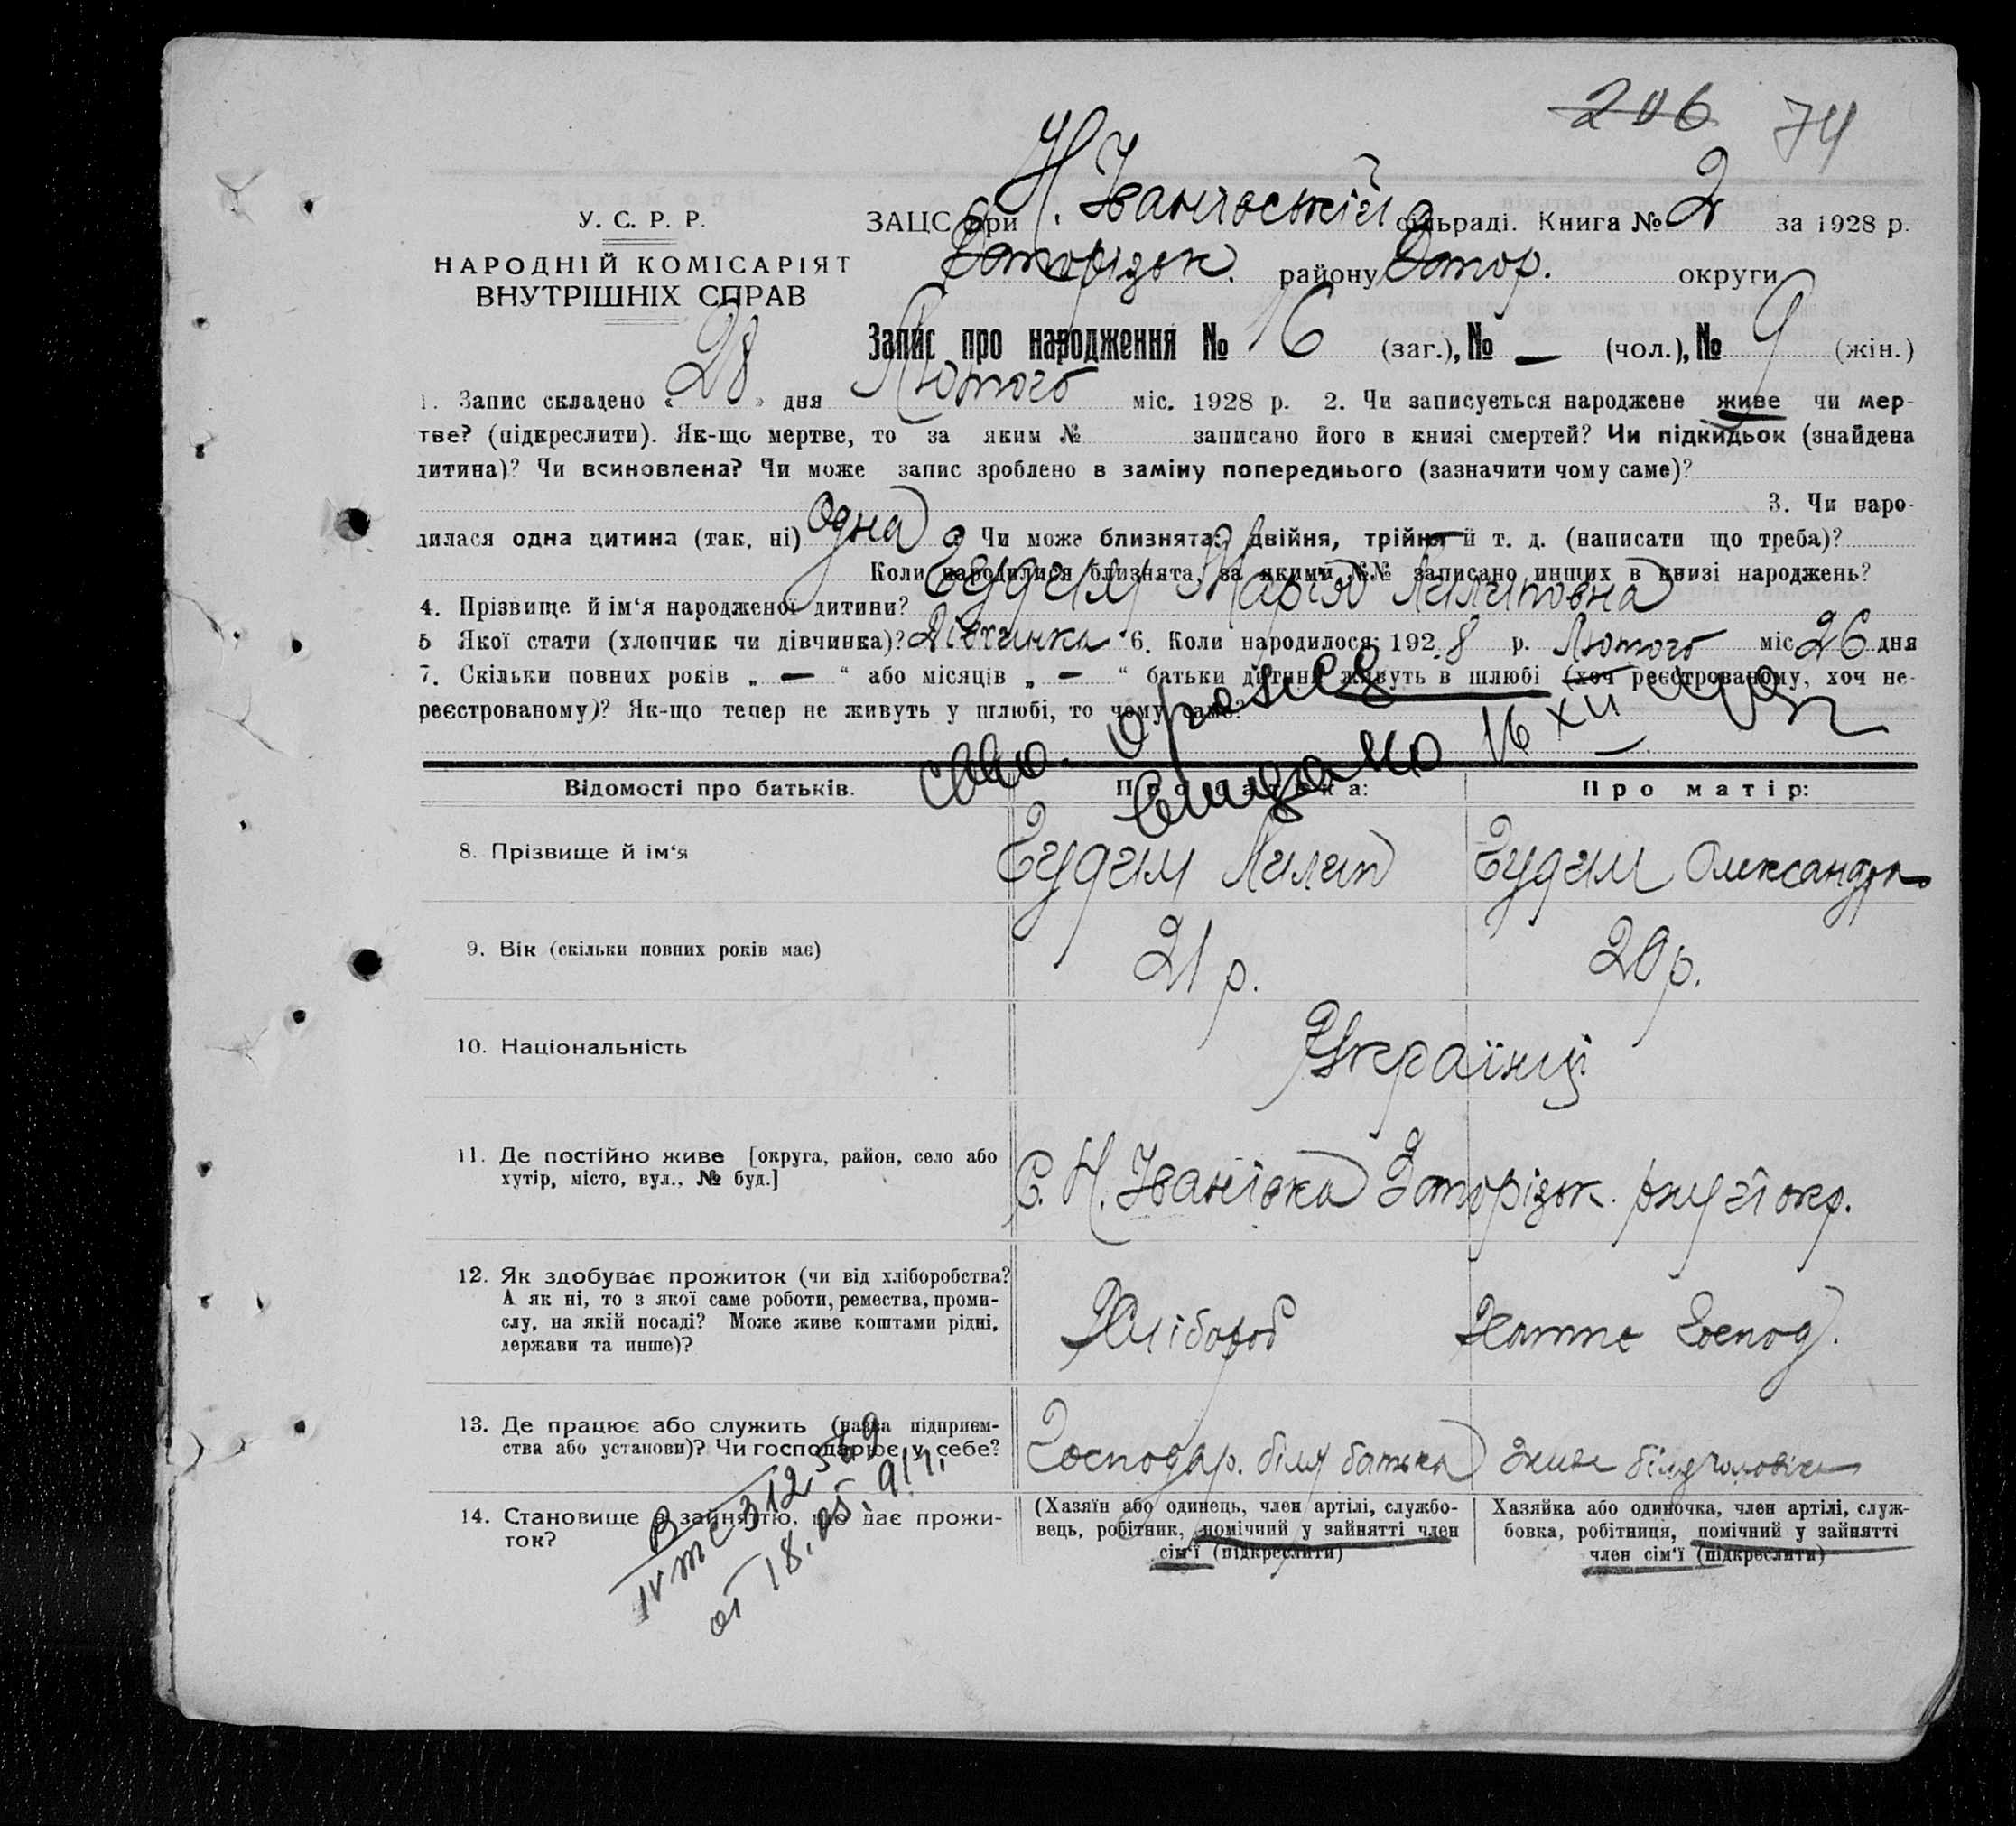 206 74
У. С. Р. Р.
НАРОДНІЙ КОМІСАРІЯТ
ВНУТРІШНІХ СПРАВ
ЗАЦС при Н. Іванівській сільраді. Книга № 2 за 1928 р.
району округи
Запис про народження № 16 (заг.), № — (чол.), № 9 (жін.)
1. Запис складено « 28 » дня Лютого міс. 1928 р. 2. Чи записується народжене живе чи мер-
тве? (підкреслити). Як-що мертве, то за яким № записано його в книзі смертей? Чи підкидьок (знайдена
дитина)? Чи всиновлена? Чи може запис зроблено в заміну попереднього (зазначити чому саме)?
3. Чи наро-
дилася одна дитина (так, ні) Одна Чи може близнята: двійня, трійня й т. д. (написати що треба)?
Коли народилися близнята, за якими №№ записано инших в книзі народжень?
4. Прізвище й ім‘я народженої дитини? Гудим Марія Пилиповна
5 Якої стати (хлопчик чи дівчинка)? Дівчинка 6. Коли народилося: 1928 р. Лютого міс 26 дня
7. Скільки повних років „ — “ або місяців „ — “ батьки дитини живуть в шлюбі (хоч реєстрованому, хоч не-
реєстрованому)? Як-що тепер не живуть у шлюбі, то чому саме?
16 XII
Відомості про батьків. Про батька: Про матір:
8. Прізвище й ім‘я Гудим Пилип Гудим Олександра
9. Вік (скільки повних років має) 21 р. 20 р.
10. Національність Українці
11. Де постійно живе [округа, район, село або
хутір, місто, вул., № буд.] С. Н. Іванівка окр.
12. Як здобуває прожиток (чи від хліборобства?
А як ні, то з якої саме роботи, ремества, проми-
слу, на якій посаді? Може живе коштами рідні,
держави та инше)?
Хлібороб Хатнє Господ.
13. Де працює або служить (назва підприєм-
ства або установи)? Чи господарює у себе?
Господар. біля батька живе біля чоловіка
14. Становище в зайняттю, що дає прожи-
ток?
(Хазяїн або одинець, член артілі, службо-
вець, робітник, помічний у зайнятті член
сім‘ї (підкреслити)
Хазяйка або одиночка, член артілі, служ-
бовка, робітниця, помічний у зайнятті
член сім‘ї (підкреслити)